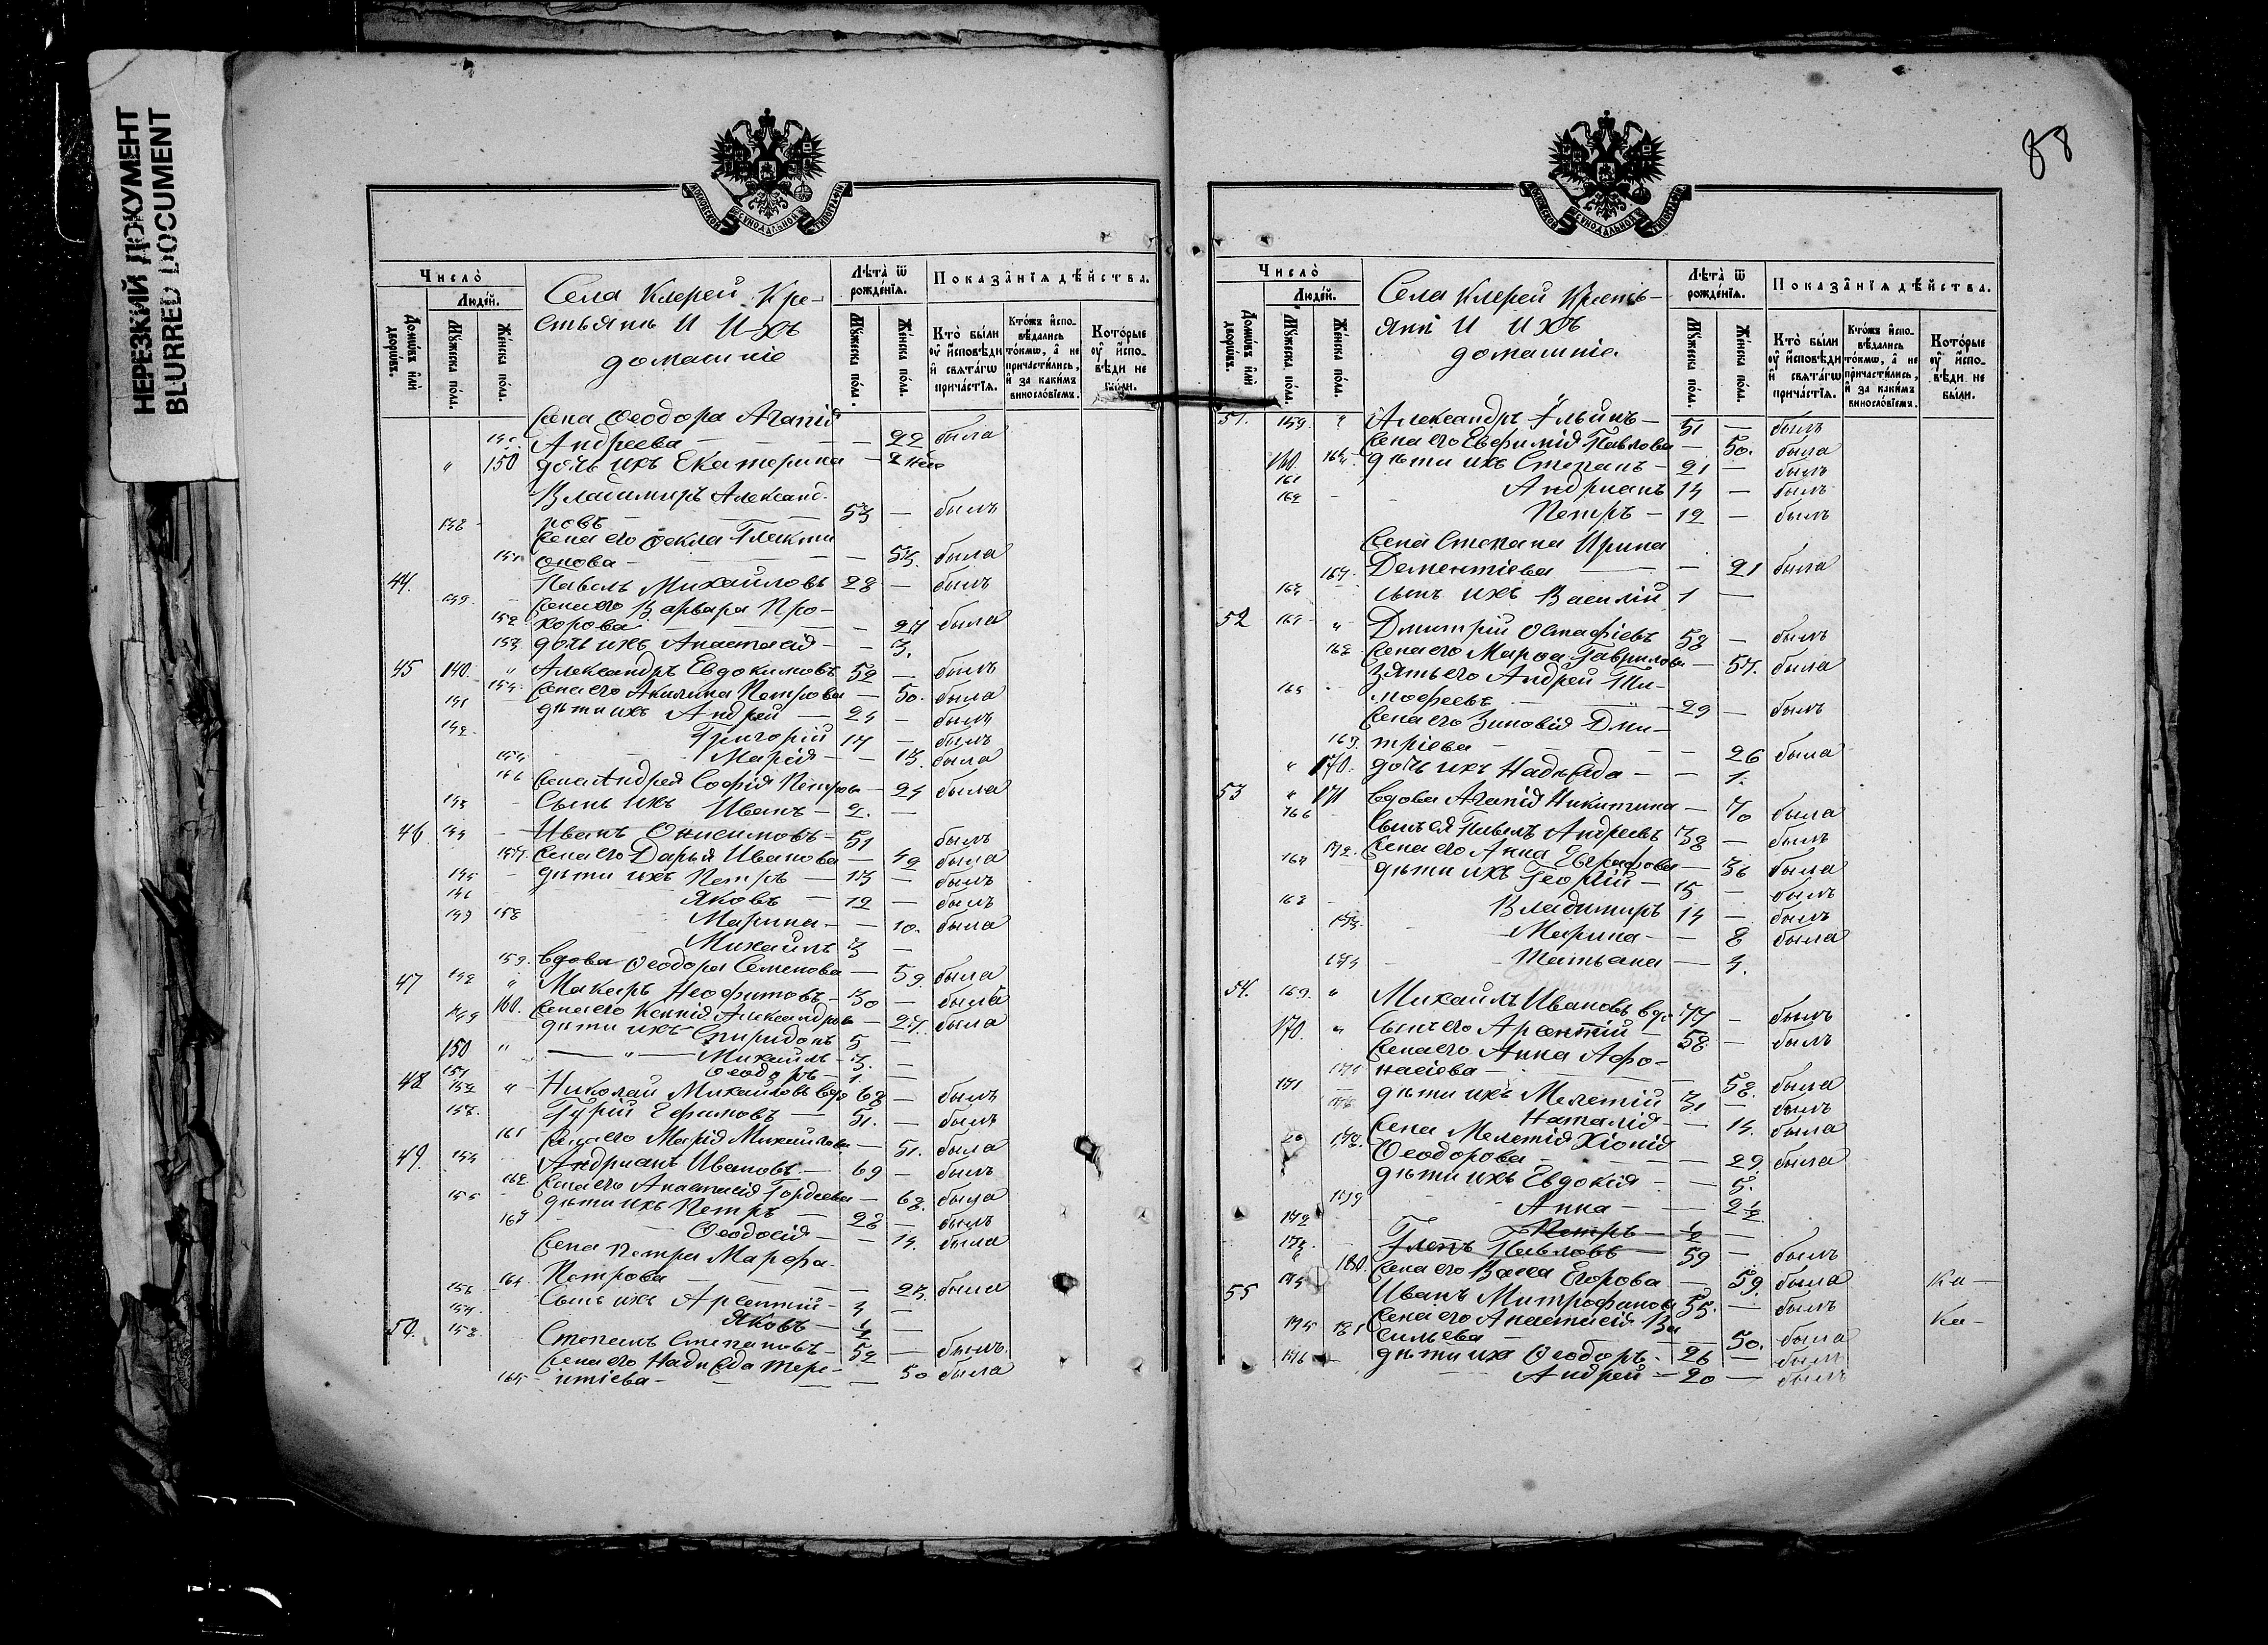 НЕРЕЗКИЙ ДОКУМЕНТ
BLURRED DOCUMENT
МОСКОВСКОЙ СѴНОДАЛЬНОЙ ТИПОГРАФІИ
Число̀
Людéй.
Домóвъ и҆лѝ дворóвъ.
Мꙋ́жеска пóла.
Жéнска пóла.
Села Клерей Кре-
стьянъ и ихъ
домашніе
Лѣ́та ѿ рождéнїѧ.
Мꙋ́жеска пóла.
Жéнска пóла.
Показа̑нїѧ дѣ́йства.
Кто̀ бы́ли ᲂу҆ и҆́сповѣди и҆ свѧта́гѡ прича́стїѧ.
Кто́жъ и҆сповѣ́дались то́кмѡ, а҆ не причасти́лись, и҆ за каки́мъ винослóвїемъ.
Котóрые ᲂу҆ и҆́сповѣди не бы́ли.
Жена Ѳеодора Агапія
Андреева — — 22 была
" 150 дочь ихъ Екатерина —
Владимиръ Александ-
138 ровъ — 53 — былъ
Жена его Ѳекла Галакти
онова — — 53. была
44. 139 Павелъ Михайловъ 28 — былъ
Жена его Варвара Про-
152 хорова — — 24 была
153 дочь ихъ Анастасія — — 3.
45 140. " Александръ Евдокимовъ 52 — былъ
154. Жена его Акилина Петрова — 50. была
141 дѣти ихъ Андрей — 24 — былъ
142 Григорій 17 — былъ
155 Марія — — 13. была
156 Жена Андрея Софія Петрова — 24 была
143 Сынъ ихъ Иванъ — 2. —
46. 144 — Иванъ Онисимовъ — 51 былъ
157. Жена его Дарья Иванова — 49 была
145 дѣти ихъ Петръ — 13 — былъ
146 Яковъ — 12 — былъ
147 158 Марина — — 10. была
Михаилъ 3 —
159. вдова Ѳеодора Семенова — 59. была
47 148 " Макаръ Неофитовъ — 30 — былъ
160. Жена его Ксенія Александрова — 27. была
149 дѣти ихъ Спиридонъ 5 —
150 " — " — Михаилъ — 3. —
151 Ѳеодоръ — 1. —
48 152 " Николай Михайловъ вдо 68 — былъ
153. Гурій Ефимовъ — 51. — былъ
161 Жена его Марія Михайлова — 51. была
49. 154 Андрианъ Ивановъ — 69 — былъ
162. Жена его Анастасія Гордеева — 68. была
155 дѣти ихъ Петръ — 28 — былъ
163 Ѳеодосія — — 14. была
Жена Петра Марфа
164 Петрова — — 23. была
156 Сынъ ихъ Арсентій — 3 —
157. Яковъ — ½ —
50. 158. Степанъ Степановъ — 52 — былъ.
Жена его Надежда Тере-
165 нтіева — — 50 была
88
МОСКОВСКОЙ СѴНОДАЛЬНОЙ ТИПОГРАФІИ
Число̀
Людéй.
Домóвъ и҆лѝ дворóвъ.
Мꙋ́жеска пóла.
Жéнска пóла.
Села Клерей Кресть-
янъ и ихъ
домашніе.
Лѣ́та ѿ рождéнїѧ.
Мꙋ́жеска пóла.
Жéнска пóла.
Показа̑нїѧ дѣ́йства.
Кто̀ бы́ли ᲂу҆ и҆́сповѣди и҆ свѧта́гѡ прича́стїѧ.
Кто́жъ и҆сповѣ́дались то́кмѡ, а҆ не причасти́лись, и҆ за каки́мъ винослóвїемъ.
Котóрые ᲂу҆ и҆́сповѣди не бы́ли.
51. 159. " Александръ Ильинъ — 51 — былъ
166. Жена его Евфимія Павлова — 50. была
160. дѣти ихъ Степанъ — 21 — былъ
161 Андрианъ 14 — былъ
162 Петръ — 12 — былъ
Жена Степана Ирина
167. Дементіева — — 21 была
163 сынъ ихъ Василій 1 —
52 164 " Дмитрій Остафіевъ 58 — былъ
168 Жена его Марѳа Гаврилова — 57. была
Зять его Андрей Ти-
165 мофеевъ — 29 — былъ
Жена его Зиновія Дми-
169. тріева — — 26 была
" 170. дочь ихъ Надежда — — 1.
53 " 171 вдова Агапія Никитина — 70 была
166 Сынъ ея Павелъ Андреевъ 38 — былъ
172. Жена его Анна Евграфова — 36 была
167 дѣти ихъ Георгій — 15 — былъ
168 Владимиръ 14 — былъ
173. Марина — — 8 была
174 Татьяна — 3.
54. 169. " Михаилъ Ивановъ вдо 77 — былъ
170. " Сынъ его Арсентій — 58 — былъ
Жена его Анна Афо-
175 насіева — — 58. была
171 дѣти ихъ Мелетій 31 — былъ
176 Наталія — 14. была
178. Жена Мелетія Хіонія
Ѳеодорова — — 29. была
дѣти ихъ Евдокія — — 5.
179 Анна — — 2½
172 Петръ — ½ —
173. Глебъ Павловъ — 59 — былъ
180 Жена его Васса Егорова — 59. была
55 174 Иванъ Митрофановъ 55. — былъ
181 Жена его Анастасія Ва
сильева — — 50. была
175 дѣти ихъ Ѳеодоръ — 26 — былъ
176 Андрей — 20 — былъ